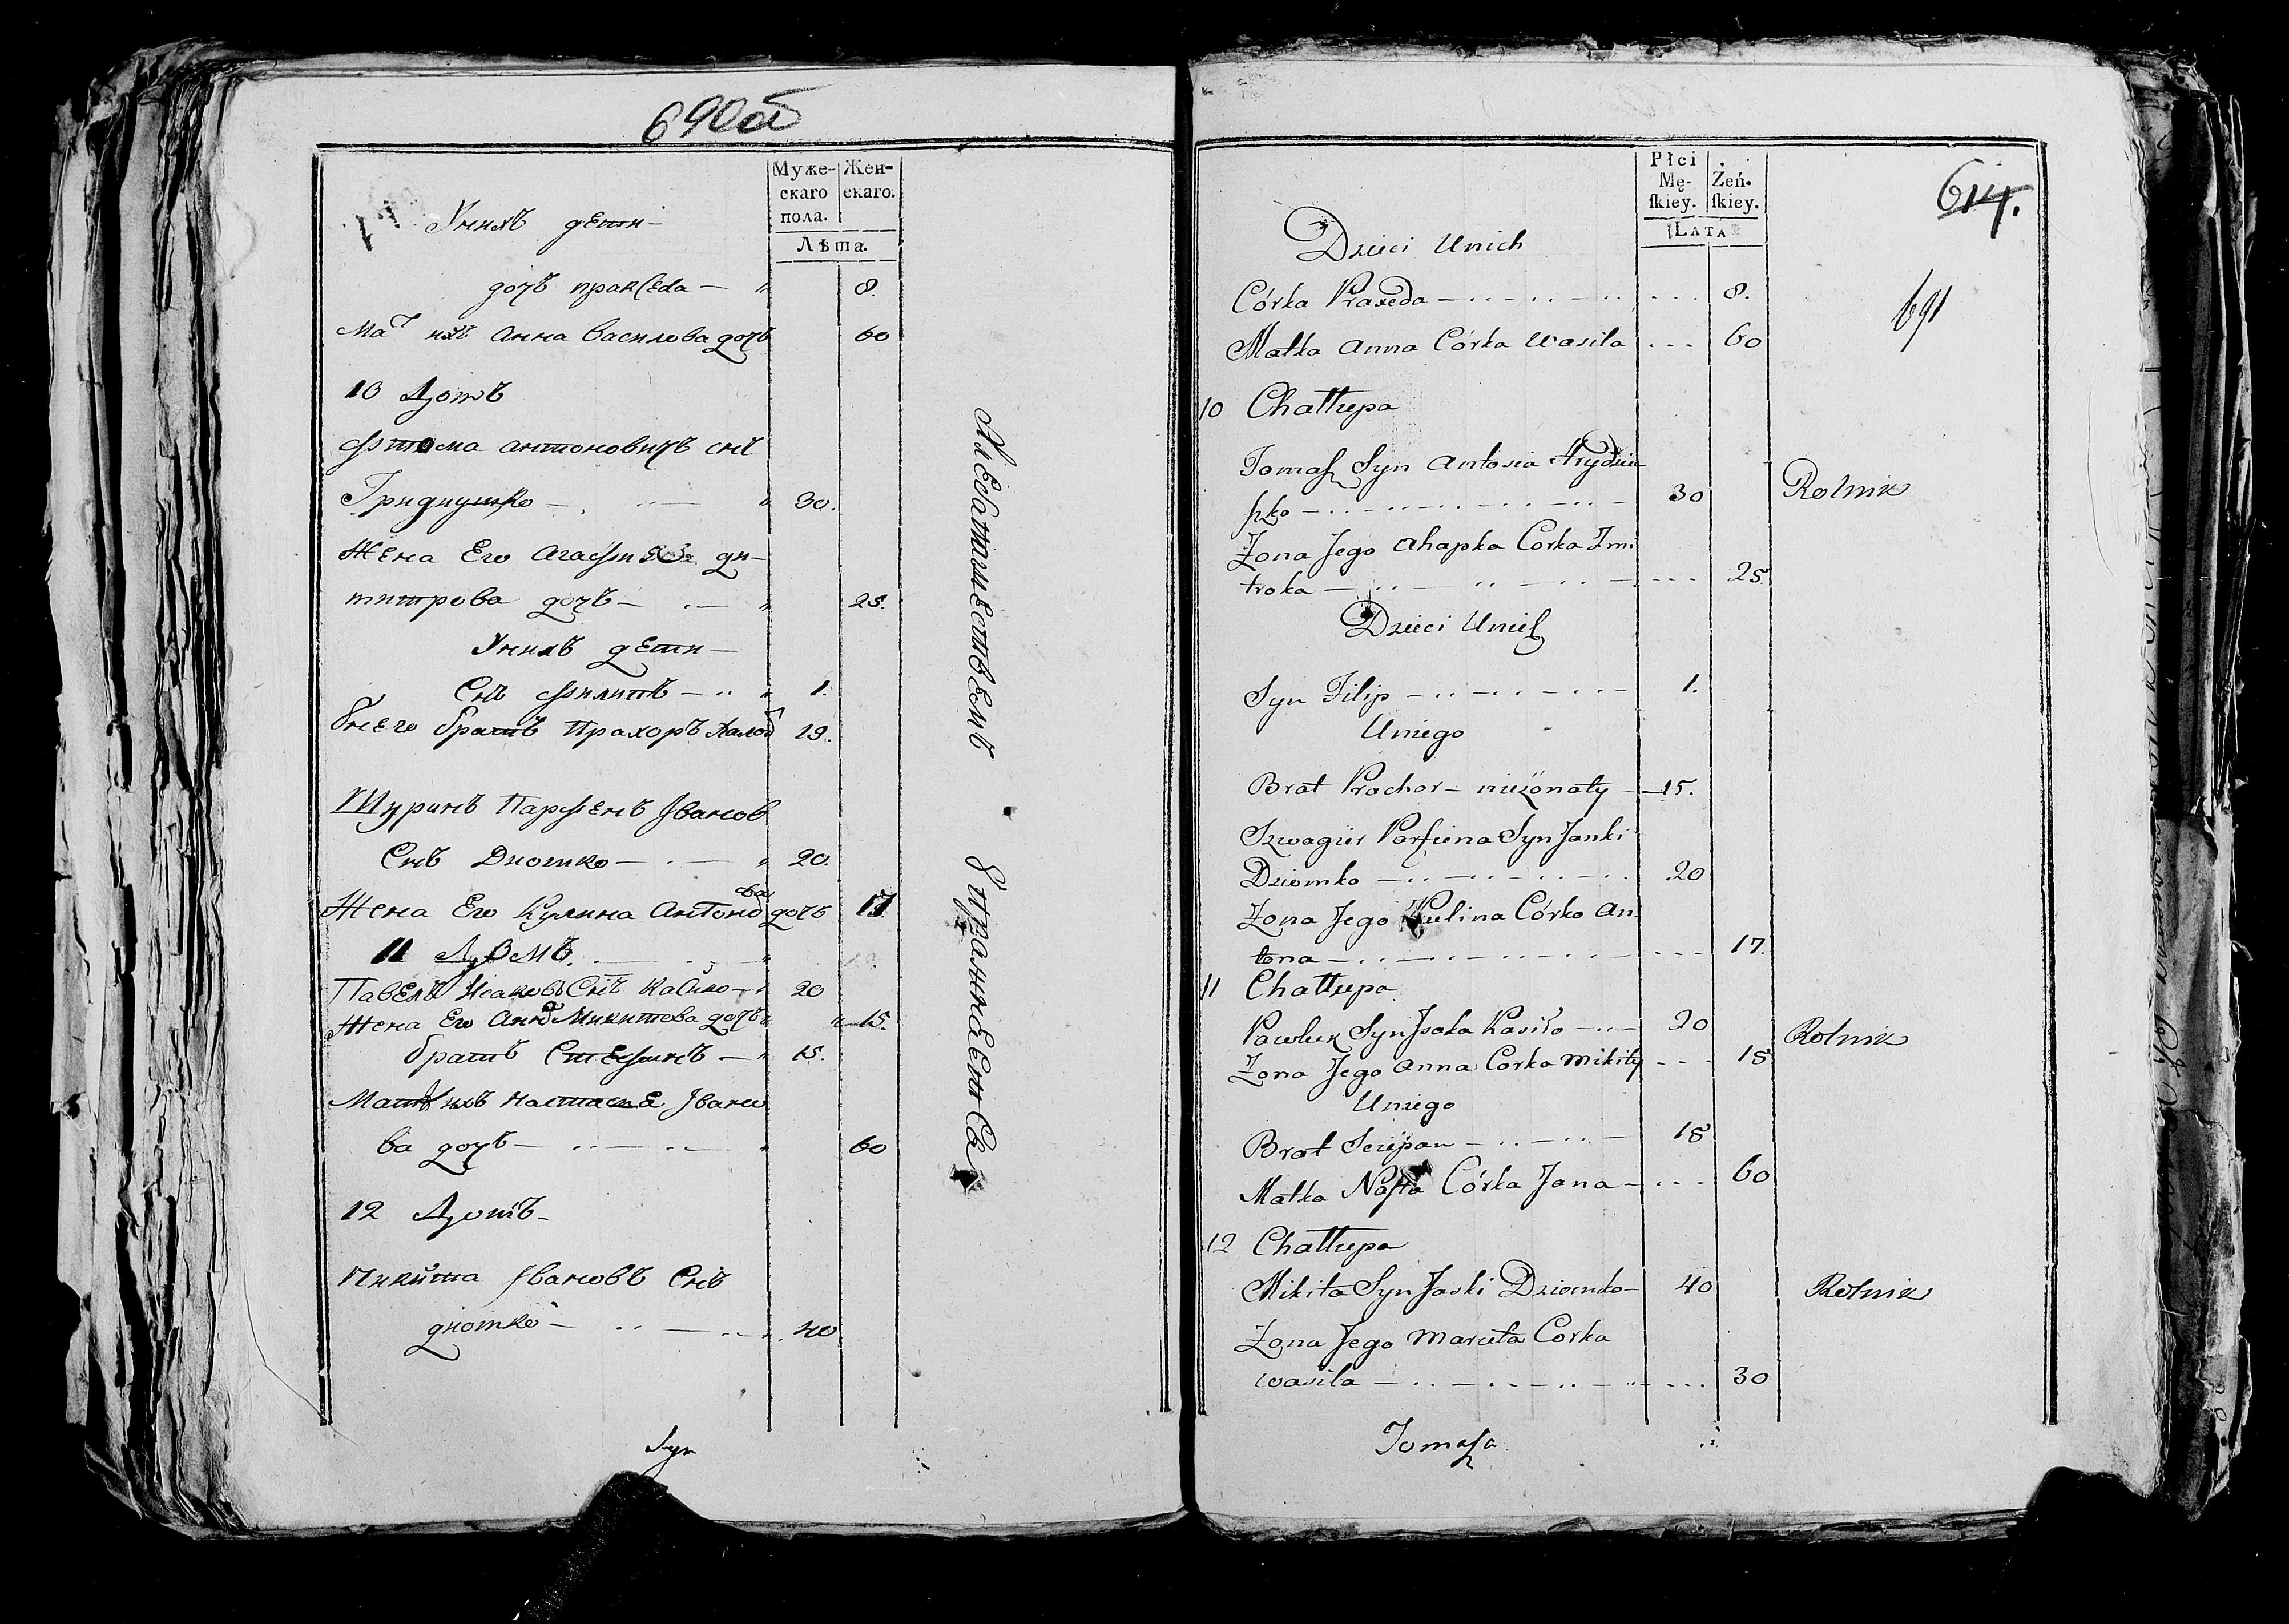 690об
Муже-
скаго
пола.
Жен-
скаго.
Лѣта.
Унихъ дети
дочъ праксеda 8.
Мат ихъ Анна Василова дочъ 60
10 Домъ
Фтома антоновичъ снъ
Гридиушко 30.
Жена Его Агафия ди-
митрова дочъ 25.
Унихъ дети
Снъ Филипъ 1.
Унего братъ Прахоръ халос 19.
Шуринъ Парфенъ Iванов
Снъ Диомко 20.
Жена Его Кулина Антонова дочъ 17
11 Домъ.
Павелъ Исаковъ Снъ Касило 20
Жена Его Анна Микитева дочъ 15.
братъ Стефанъ 15.
Мать ихъ Настасиа Iвано
ва дочъ 60
12 Домъ
Никита Iвановъ Снъ
диомко 40
Syn
Płci
Mę-
ſkiey.
Żeń-
ſkiey.
LATA
614.
691
Dzieci Unich
Córka Praxeda 8.
Matka Anna Córka Wasila 60
10 Chałłupa
Tomaſz Syn Antosia Hrydziu
ſzko 30 Rolnik
Żona Jego Ahapka Corka Dmi
troka 25.
Dzieci Unich
Syn Filip 1.
Uniego
Brat Prachor nieżonaty 15.
Szwagier Parfiena Syn Janki
Dziomko 20
Żona Jego Kulina Córka An
tona 17.
11 Chałłupa
Pawluk Syn Jsaka Kasiło 20 Rolnik
Żona Jego Anna Corka Mikity 15
Uniego
Brat Sciepan 15
Matka Naſta Córka Jana 60
12 Chałłupa
Mikita Syn Jaśki Dziomko 40 Rolnik
Żona Jego Maruta Corka
Wasila 30
Tomaſza